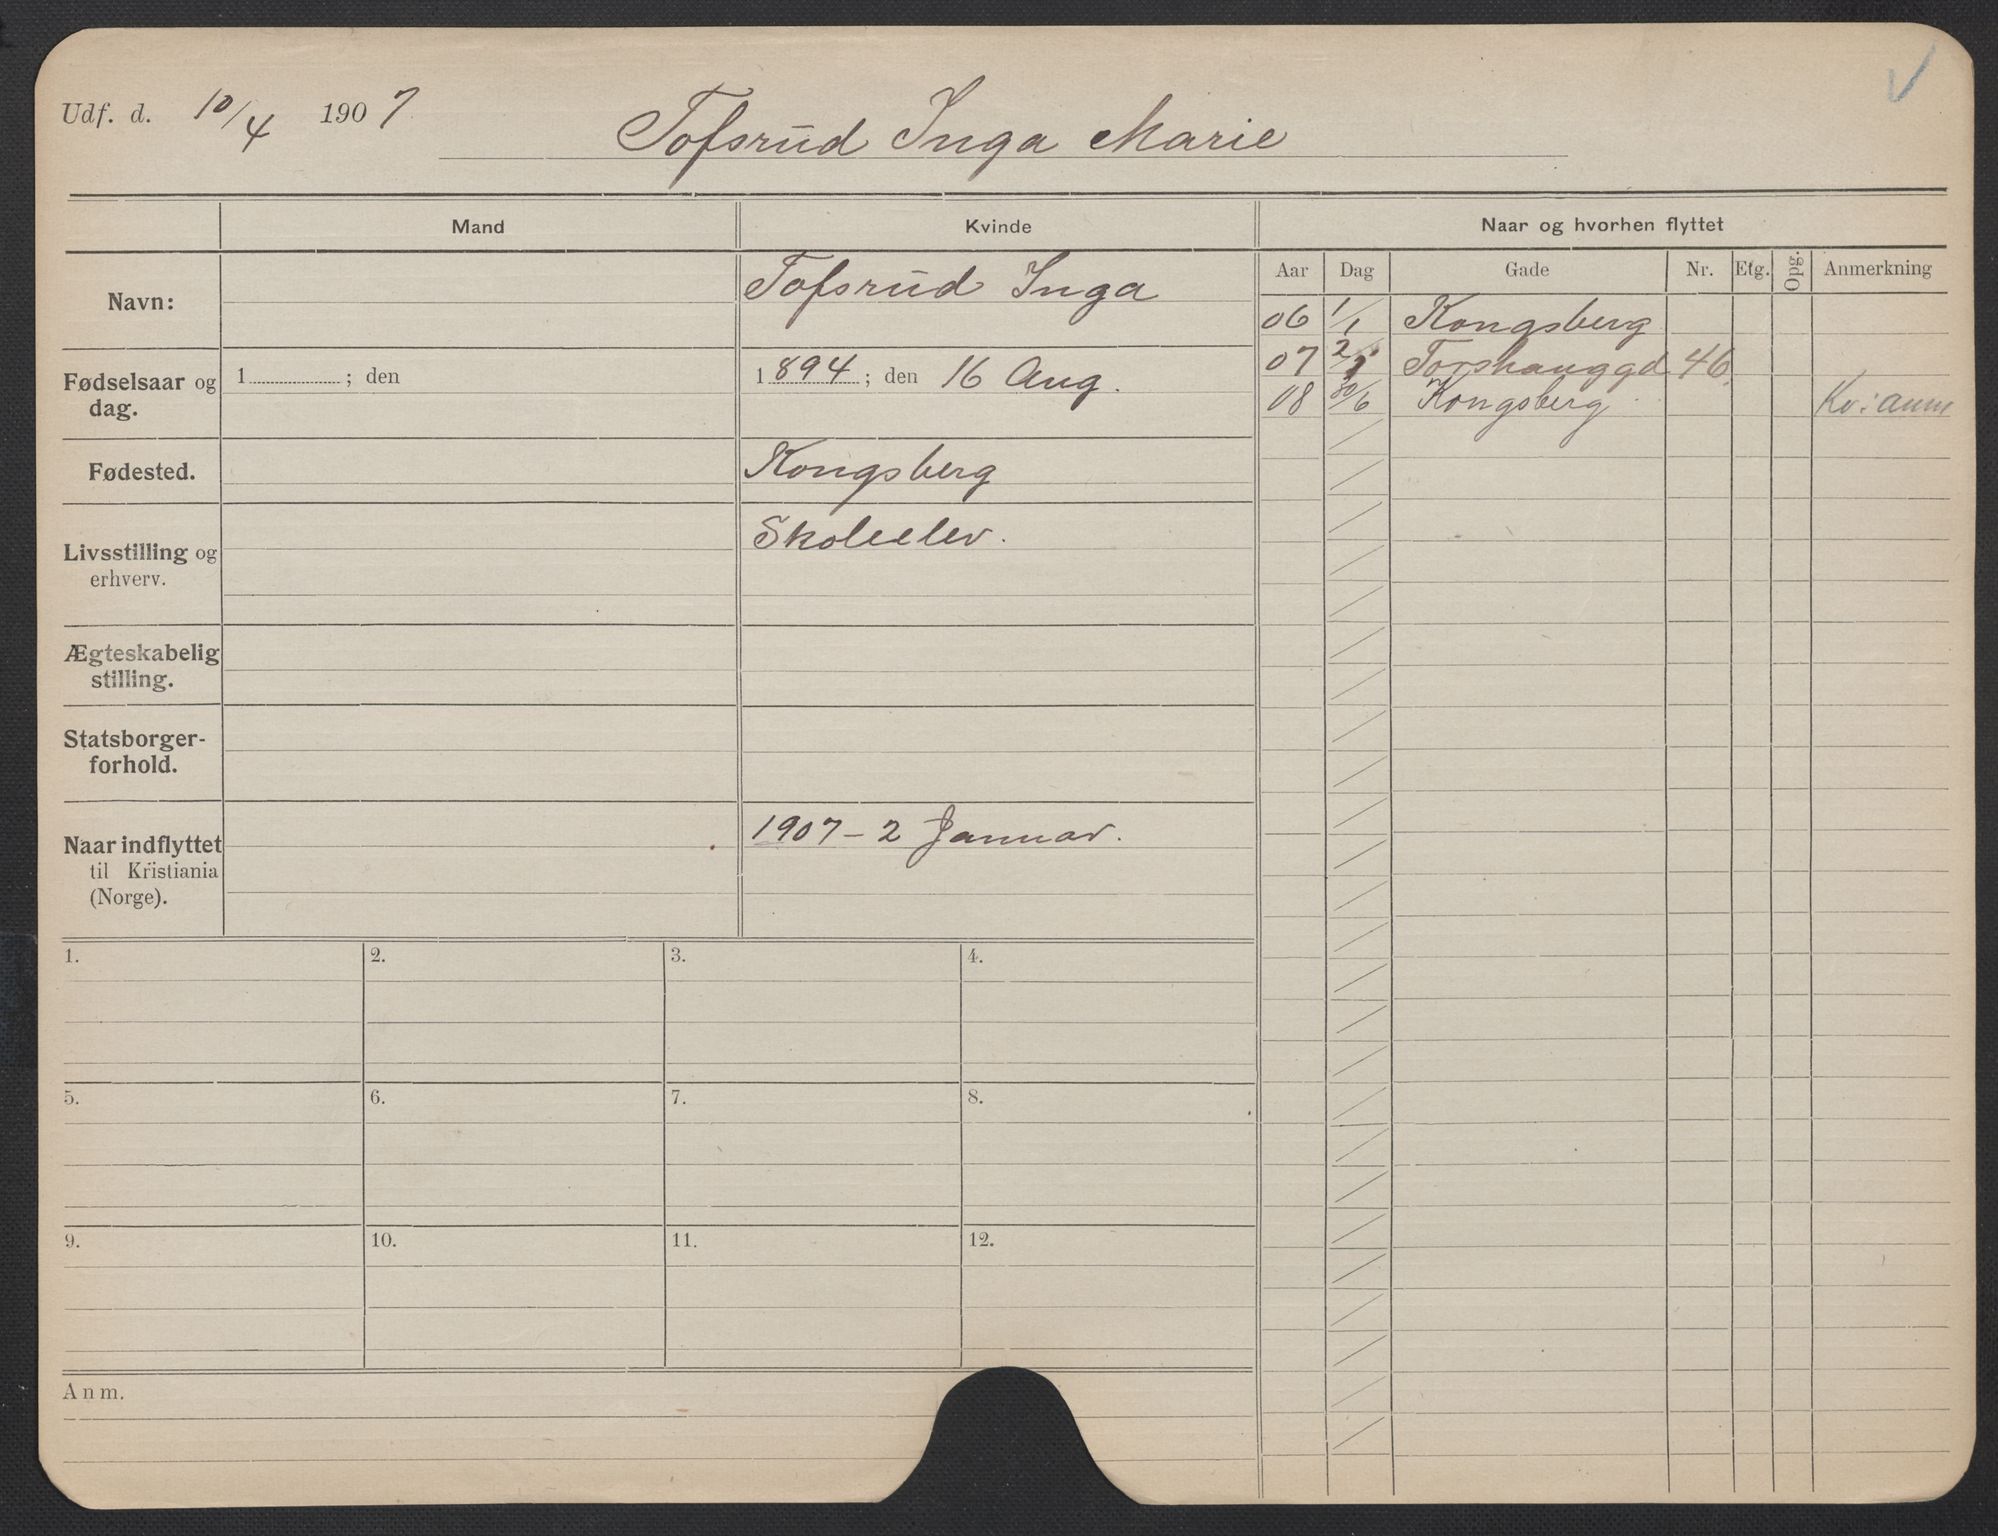 Udf. d. 10/4 1907 Tofsrud Inga Marie
Mand Kvinde Naar og hvorhen flyttet
Aar Dag Gade Nr. Etg. Opg. Anmerkning
Navn: Tofsrud Inga
06 1/1 Kongsberg
07 2/1 Torshauggd 46.
08 30/6 Kongsberg Kv: anm
Fødselsaar og 1 ; den 1894; den 16 Aug.
dag.
Fødested. Kongsberg
Livsstilling og Skoleelev.
erhverv.
Ægteskabelig
stilling.
Statsborger-
forhold.
Naar indflyttet 1907 – 2 Januar.
til Kristiania
(Norge).
1. 2. 3. 4.
5. 6. 7. 8.
9. 10. 11. 12.
Anm.